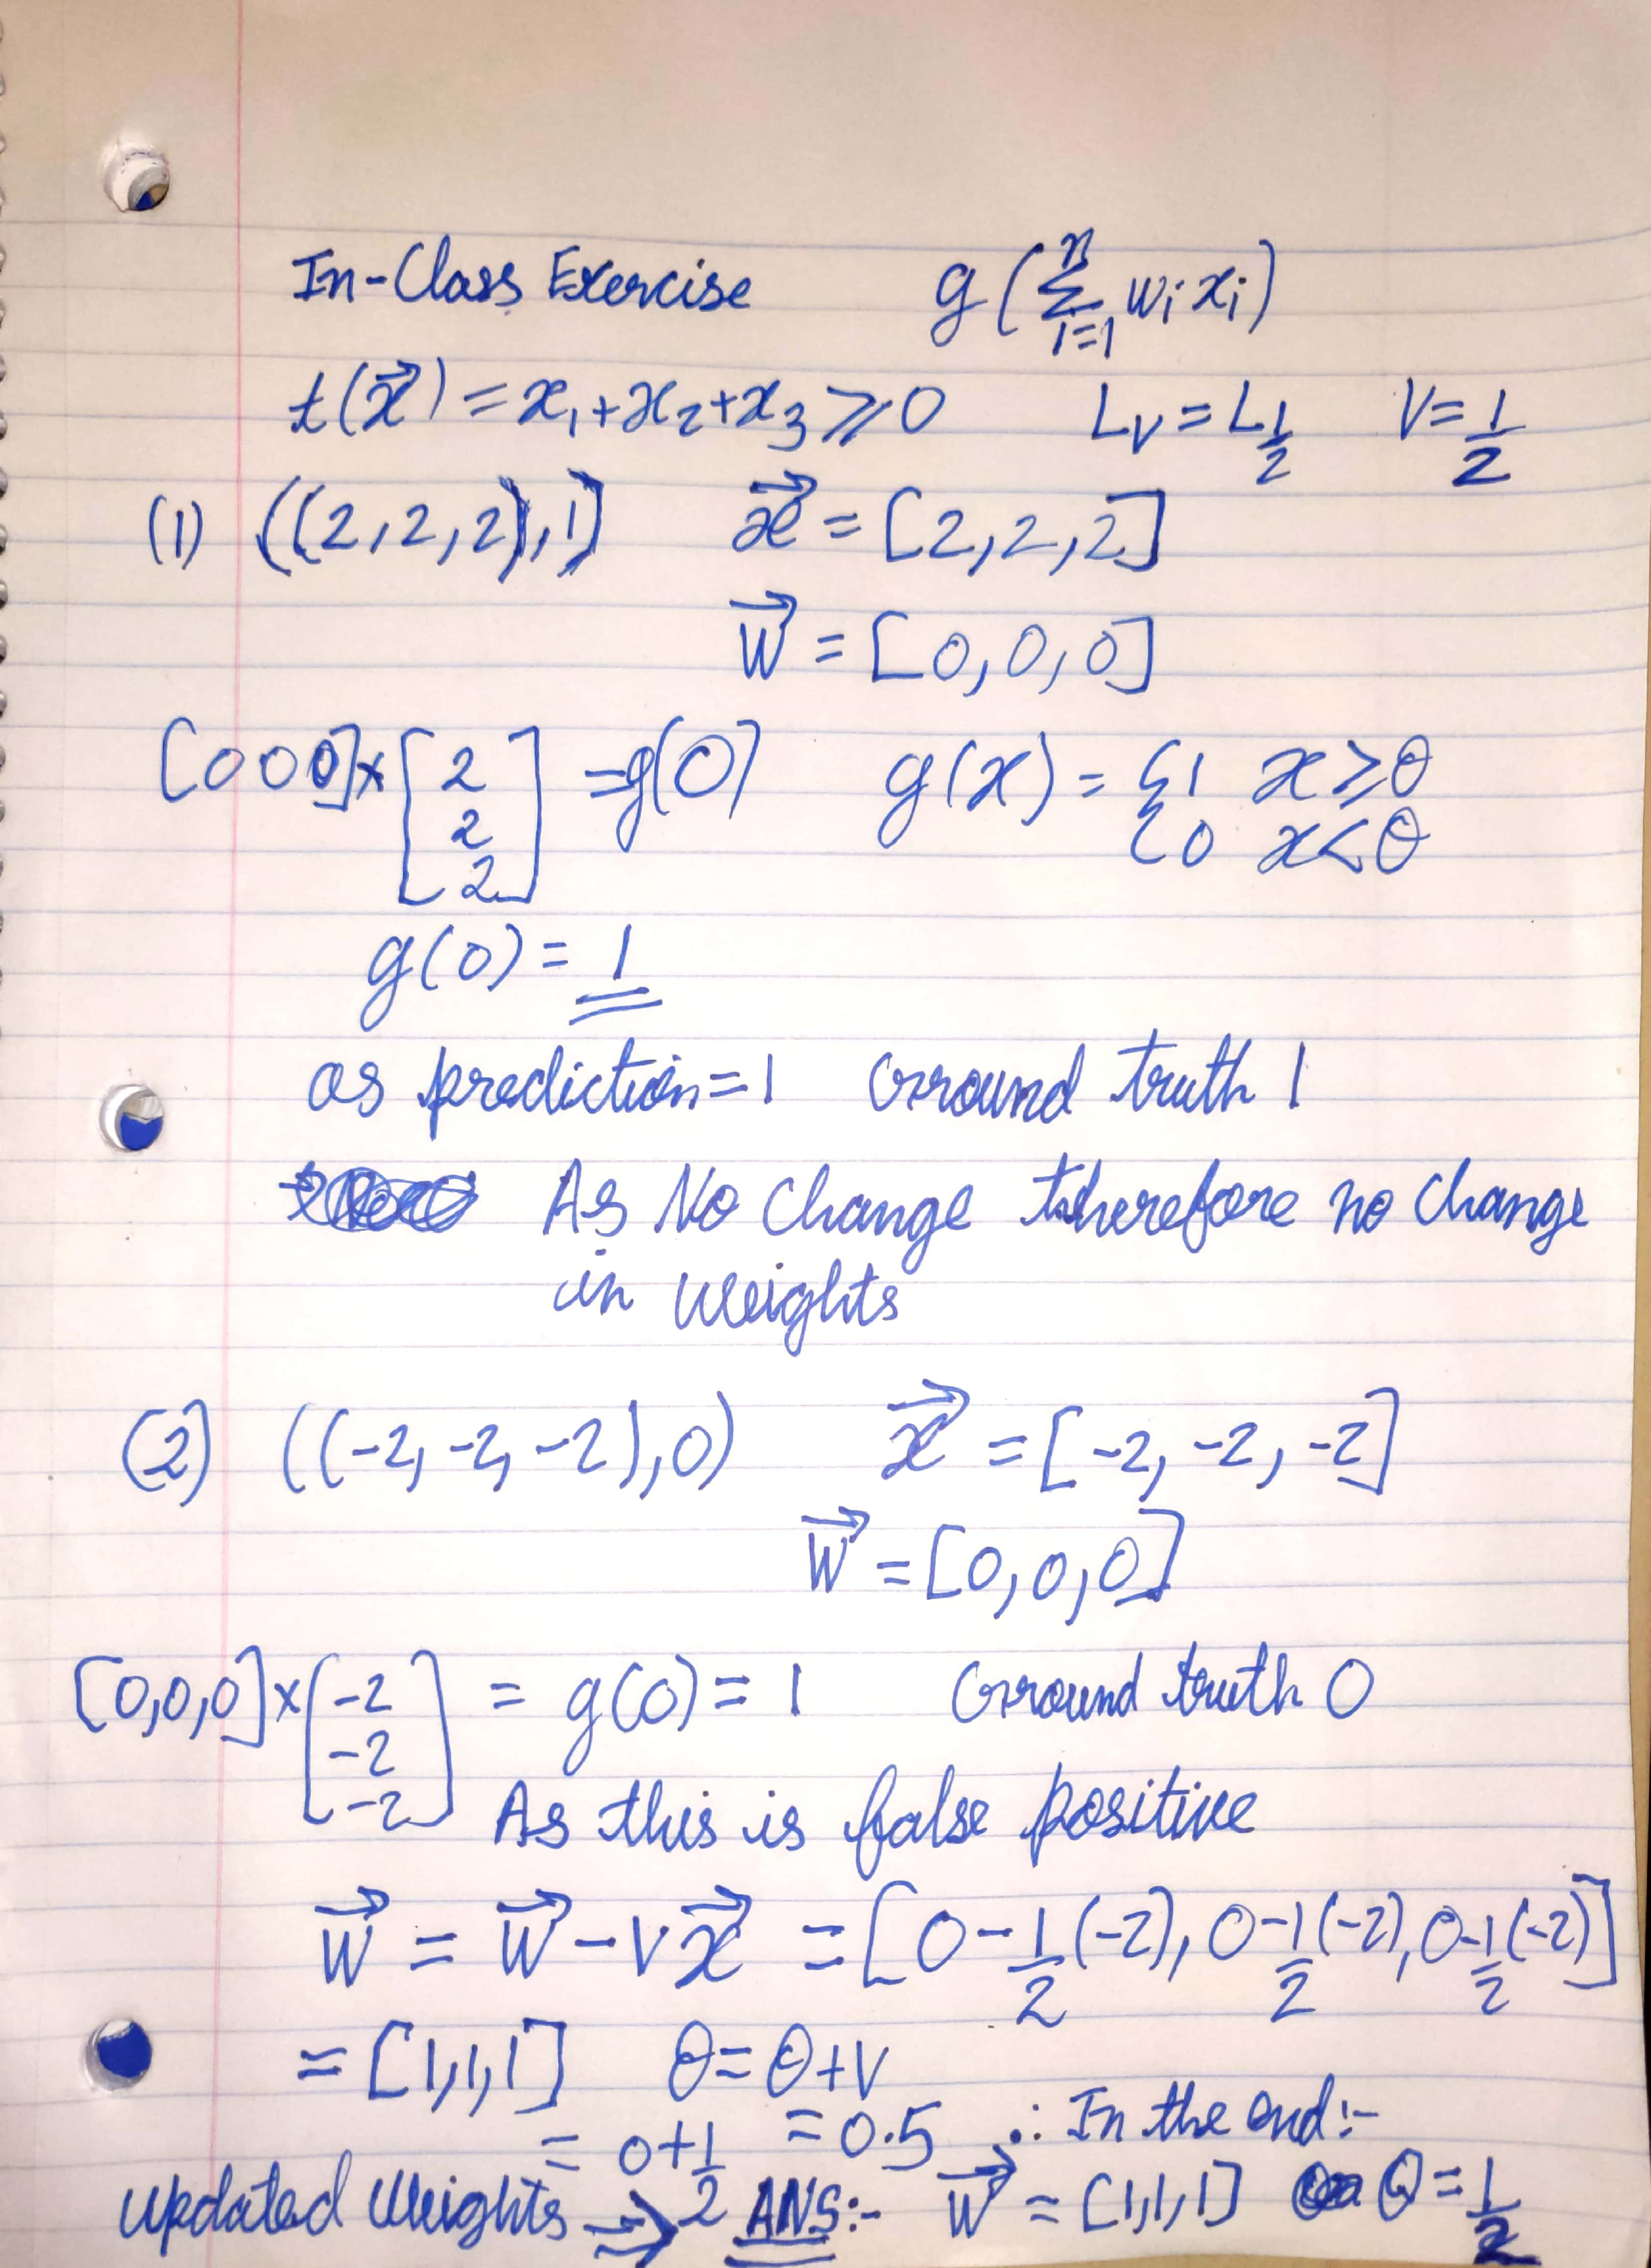 In-Class Exercise g(∑ⁿᵢ₌₁ wᵢ xᵢ)
t(x⃗) = x₁+x₂+x₃ ⩾ 0 Lᵥ = L½ V = 1/2
(1) ((2,2,2),1) x⃗ = [2,2,2]
W⃗ = [0,0,0]
[0 0 0] x [2 2 2] = g(0) g(x) = { 1 x ⩾ θ
{ 0 x < θ
g(0) = 1
as prediction = 1 Ground truth 1
As No Change therefore no Change
in weights
(2) ((-2, -2, -2), 0) x⃗ = [-2, -2, -2]
W⃗ = [0, 0, 0]
[0,0,0] x [-2 -2 -2] = g(0) = 1 Ground truth 0
As this is false positive
W⃗ = W⃗ - V x⃗ = [0 - 1/2 (-2), 0 - 1/2 (-2), 0 - 1/2 (-2)]
= [1,1,1] θ = θ + V
= 0 + 1/2 = 0.5 ∴ In the end :-
updated weights → ANS :- W⃗ = [1,1,1] θ = 1/2